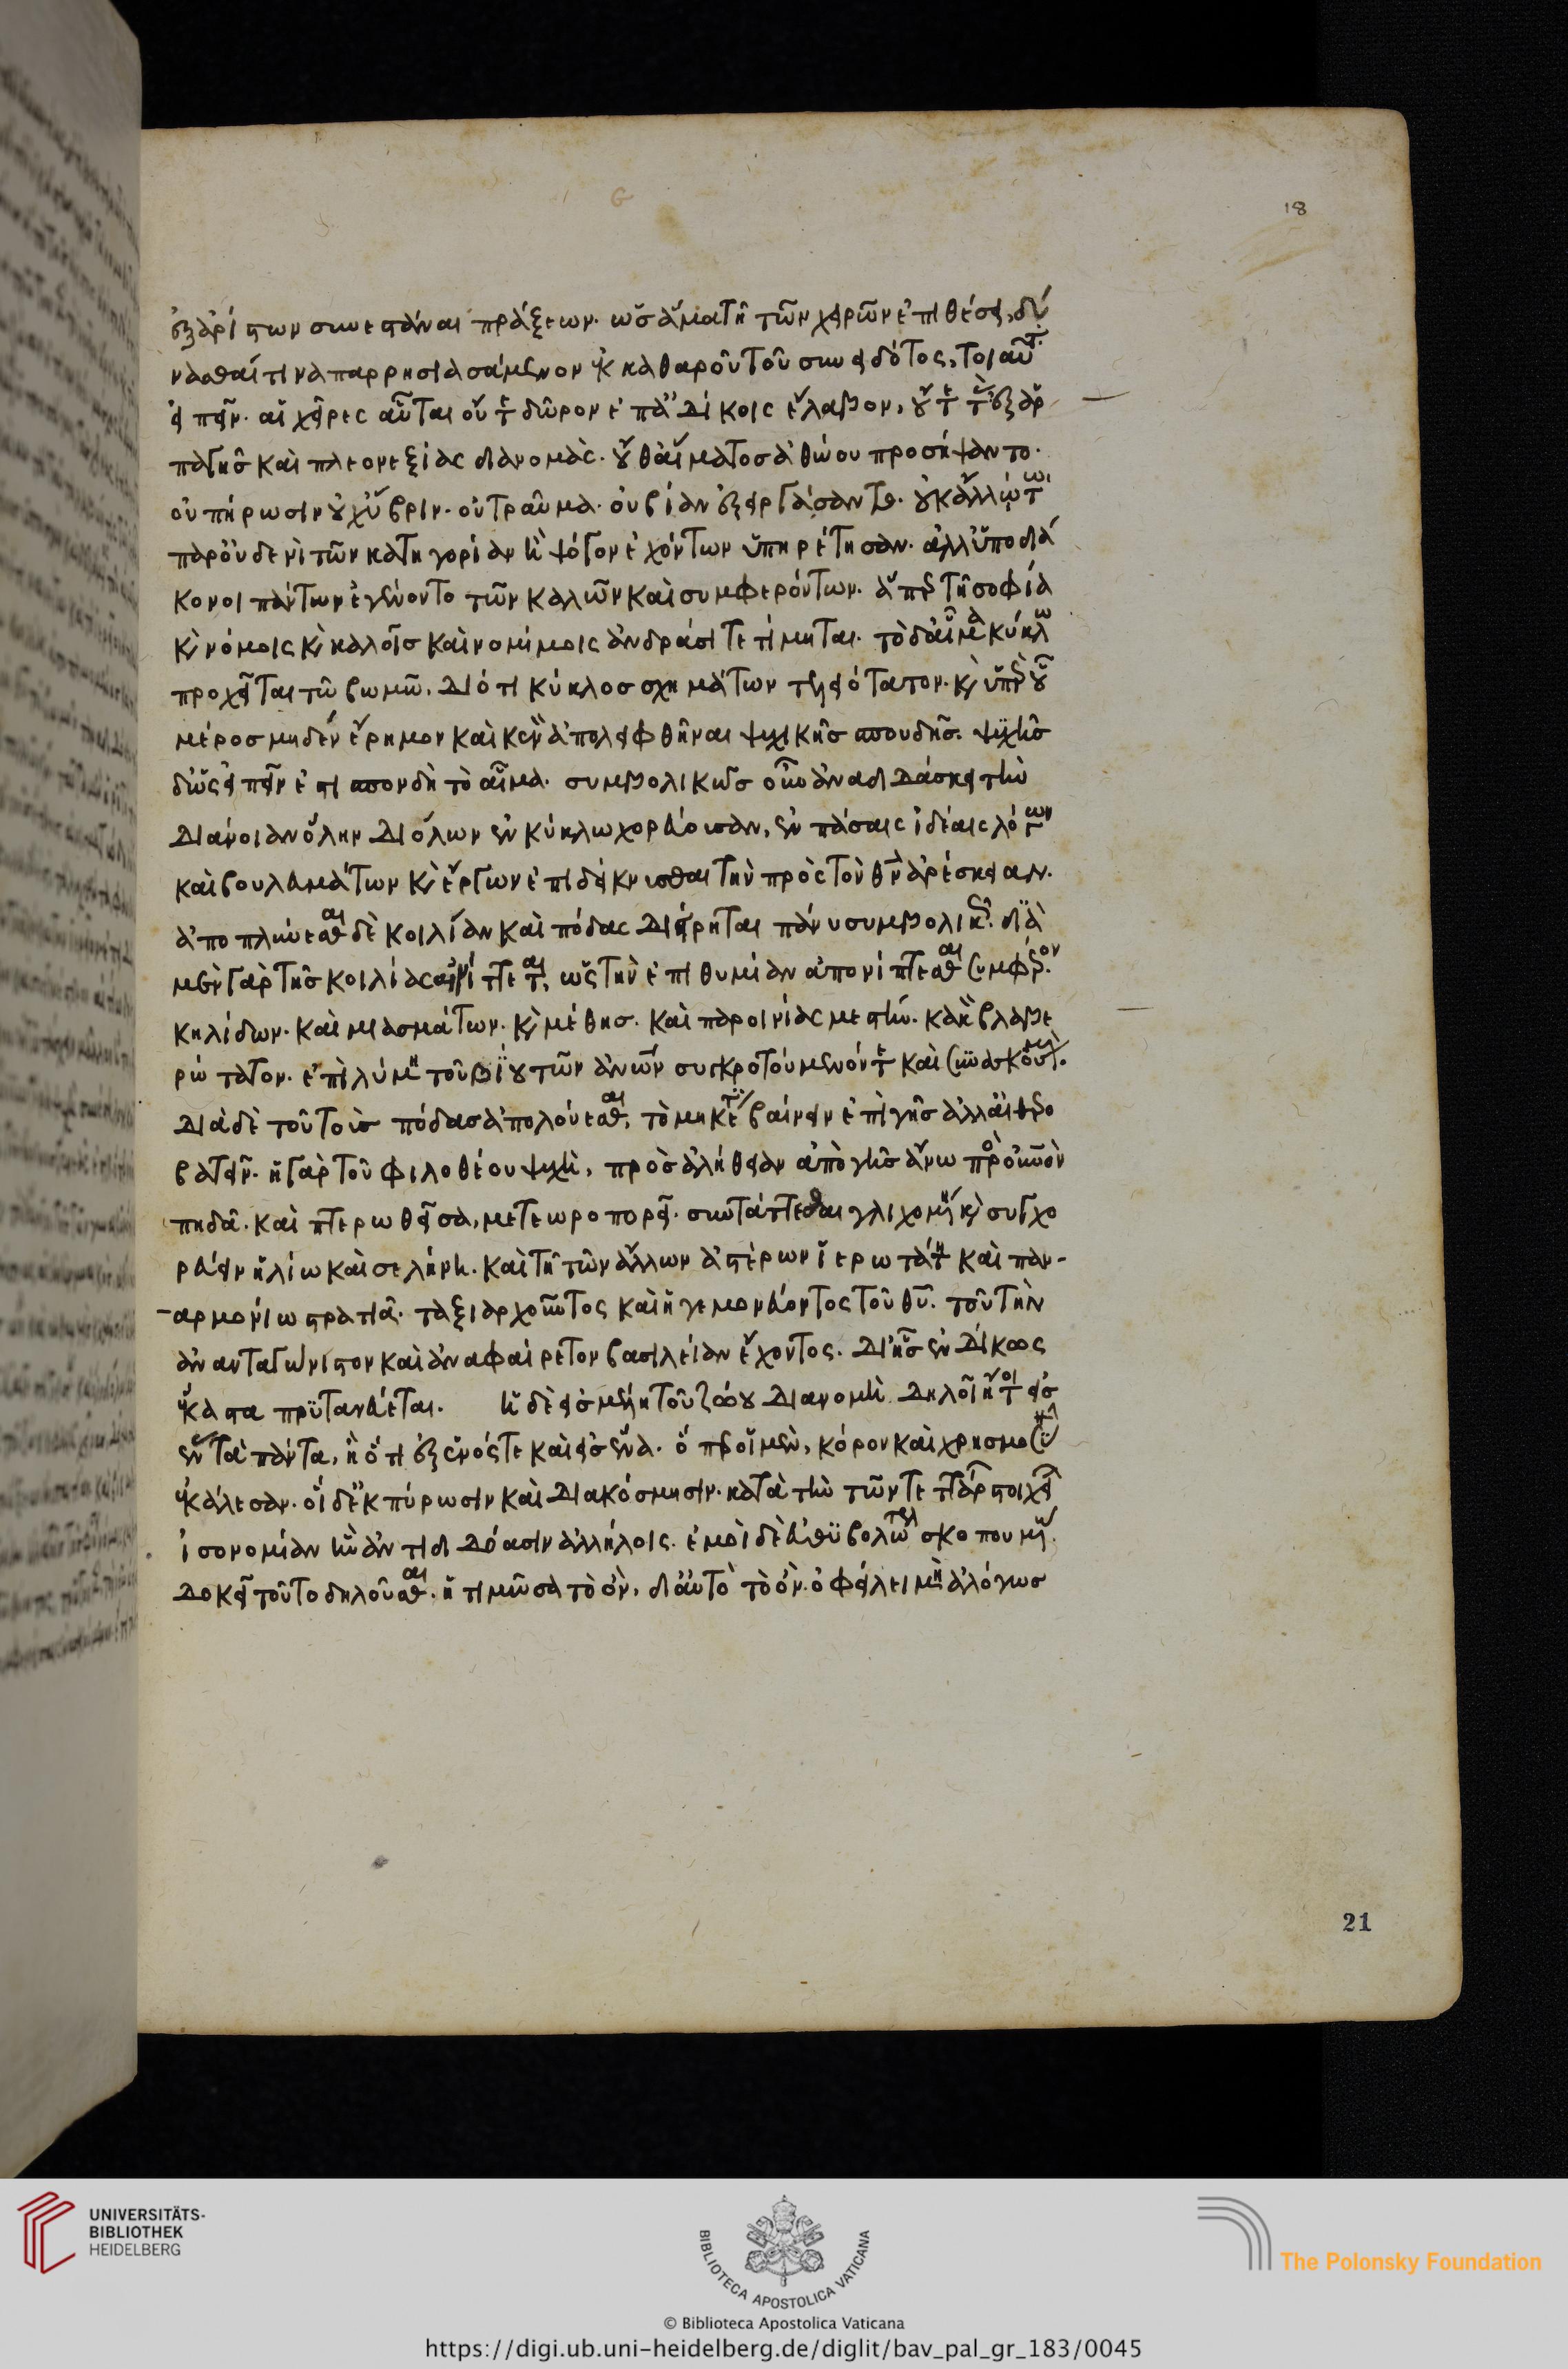 ἐξ ἀρίστων συνεστάναι πράξεων. ὡς ἅμα τῆ τῶν χειρῶν ἐπιθέσει, δύ
νασθαί τινα παρρησιασάμενον ἐκ καθαροῦ τοῦ συνειδότος, τοιαῦτ
εἰπεῖν. αἱ χεῖρες αὗται οὔτε δῶρον ἐπ' ἀδίκοις ἔλαβον, οὔτε τὰς ἐξ ἁρ
παγῆς καὶ πλεονεξίας διανομάς. οὔθ' αἵματος ἀθώου προσήψαντο.
οὐ πήρωσιν οὐχ ὕβριν. οὐ τραῦμα. οὐ βίαν ἐξειργάσαντο. οὐκ ἄλλω τω
παρ' οὐδενὶ τῶν κατηγορίαν ἢ ψόγον ἐχόντων ὑπηρέτησαν. ἀλλ' ὑποδιά
κονοι πάντων ἐγένοντο τῶν καλῶν καὶ συμφερόντων. ἃ παρὰ τῆ σοφία
καὶ νόμοις καὶ καλοῖς καὶ νομίμοις ἀνδράσι τετίμηται. τὸ δ' αἷμα κύκλω
προχεῖται τῶ βωμῶ. διότι κύκλος σχημάτων τελειότατον. καὶ ὑπὲρ τοῦ
μέρος μηδὲν ἔρημον καὶ κενὸν ἀπολειφθῆναι ψυχικῆς σπονδῆς. ψυχῆς
δ' ὡς εἰπεῖν ἐστι σπονδὴ τὸ αἷμα. συμβολικῶς οὖν ἀναδιδάσκει τὴν
διάνοιαν ὅλην δι' ὅλων ἐν κύκλω χορεύουσαν, ἐν πάσαις ἰδέαις λόγων
καὶ βουλευμάτων καὶ ἔργων ἐπιδείκνυσθαι τὴν πρὸς τὸν θν ἀρέσκειαν.
ἀποπλύνεσθαι δὲ κοιλίαν καὶ πόδας διείρηται πάνυ συμβολικῶς. διὰ
μὲν γὰρ τῆς κοιλίας αἰνίττεται, ὡς τὴν ἐπιθυμίαν ἀπονίπτεσθαι συμφέρον.
κηλίδων. καὶ μιασμάτων. καὶ μέθης. καὶ παροινίας μεστήν. κακὸν βλαβε
ρώτατον. ἐπὶ λύμη τοῦ βίου τῶν ἀνων συγκροτούμενόν τε καὶ συνασκούμενον.
διὰ δὲ τοῦ τοὺς πόδας ἀπολούεσθαι, τὸ μηκέτι βαίνειν ἐπὶ γῆς ἀλλ' αἰθερο
βατεῖν. ἡ γὰρ τοῦ φιλοθέου ψυχὴ, πρὸς ἀλήθειαν ἀπὸ γῆς ἄνω πρὸς οὐνὸν
πηδᾶ. καὶ πτερωθεῖσα, μετεωροπορεῖ. συντάττεσθαι γλιχομένη καὶ συγχο
ρεύειν ἡλίω καὶ σελήνη. καὶ τῆ τῶν ἄλλων ἀστέρων ἱερωτάτη καὶ παν-
-αρμονίω στρατιᾶ. ταξιαρχοῦντος καὶ ἡγεμονεύοντος τοῦ θυ. τοῦ τὴν
ἀνανταγώνιστον καὶ ἀναφαίρετον βασιλείαν ἔχοντος. δι' ἧς ἐνδίκως
ἕκαστα πρυτανεύεται. ἡ δὲ εἰς μέλη τοῦ ζώου διανομὴ δηλοῖ ἤτοι εἰς
ἓν τὰ πάντα, ἢ ὅτι ἐξ ἑνός τε καὶ εἰς ἕνα. ὅπερ οἱ μὲν, κόρον καὶ χρησμοσύνην
ἐκάλεσαν. οἱ δ' ἐκπύρωσιν καὶ διακόσμησιν. κατὰ τὴν τῶν τεττάρων στοιχείων
ἰσονομίαν ἣν ἀντιδιδόασιν ἀλλήλοις. ἐμοὶ δὲ εὐθυβολώτερον σκοπουμένω.
δοκεῖ τοῦτο δηλοῦσθαι. ἡ τιμῶσα τὸ ὂν, δι' αὐτὸ τὸ ὂν. ὀφείλει μὴ ἀλόγως
18
21
UNIVERSITÄTS-
BIBLIOTHEK
HEIDELBERG
BIBLIOTECA APOSTOLICA VATICANA
The Polonsky Foundation
© Biblioteca Apostolica Vaticana
https://digi.ub.uni-heidelberg.de/diglit/bav_pal_gr_183/0045